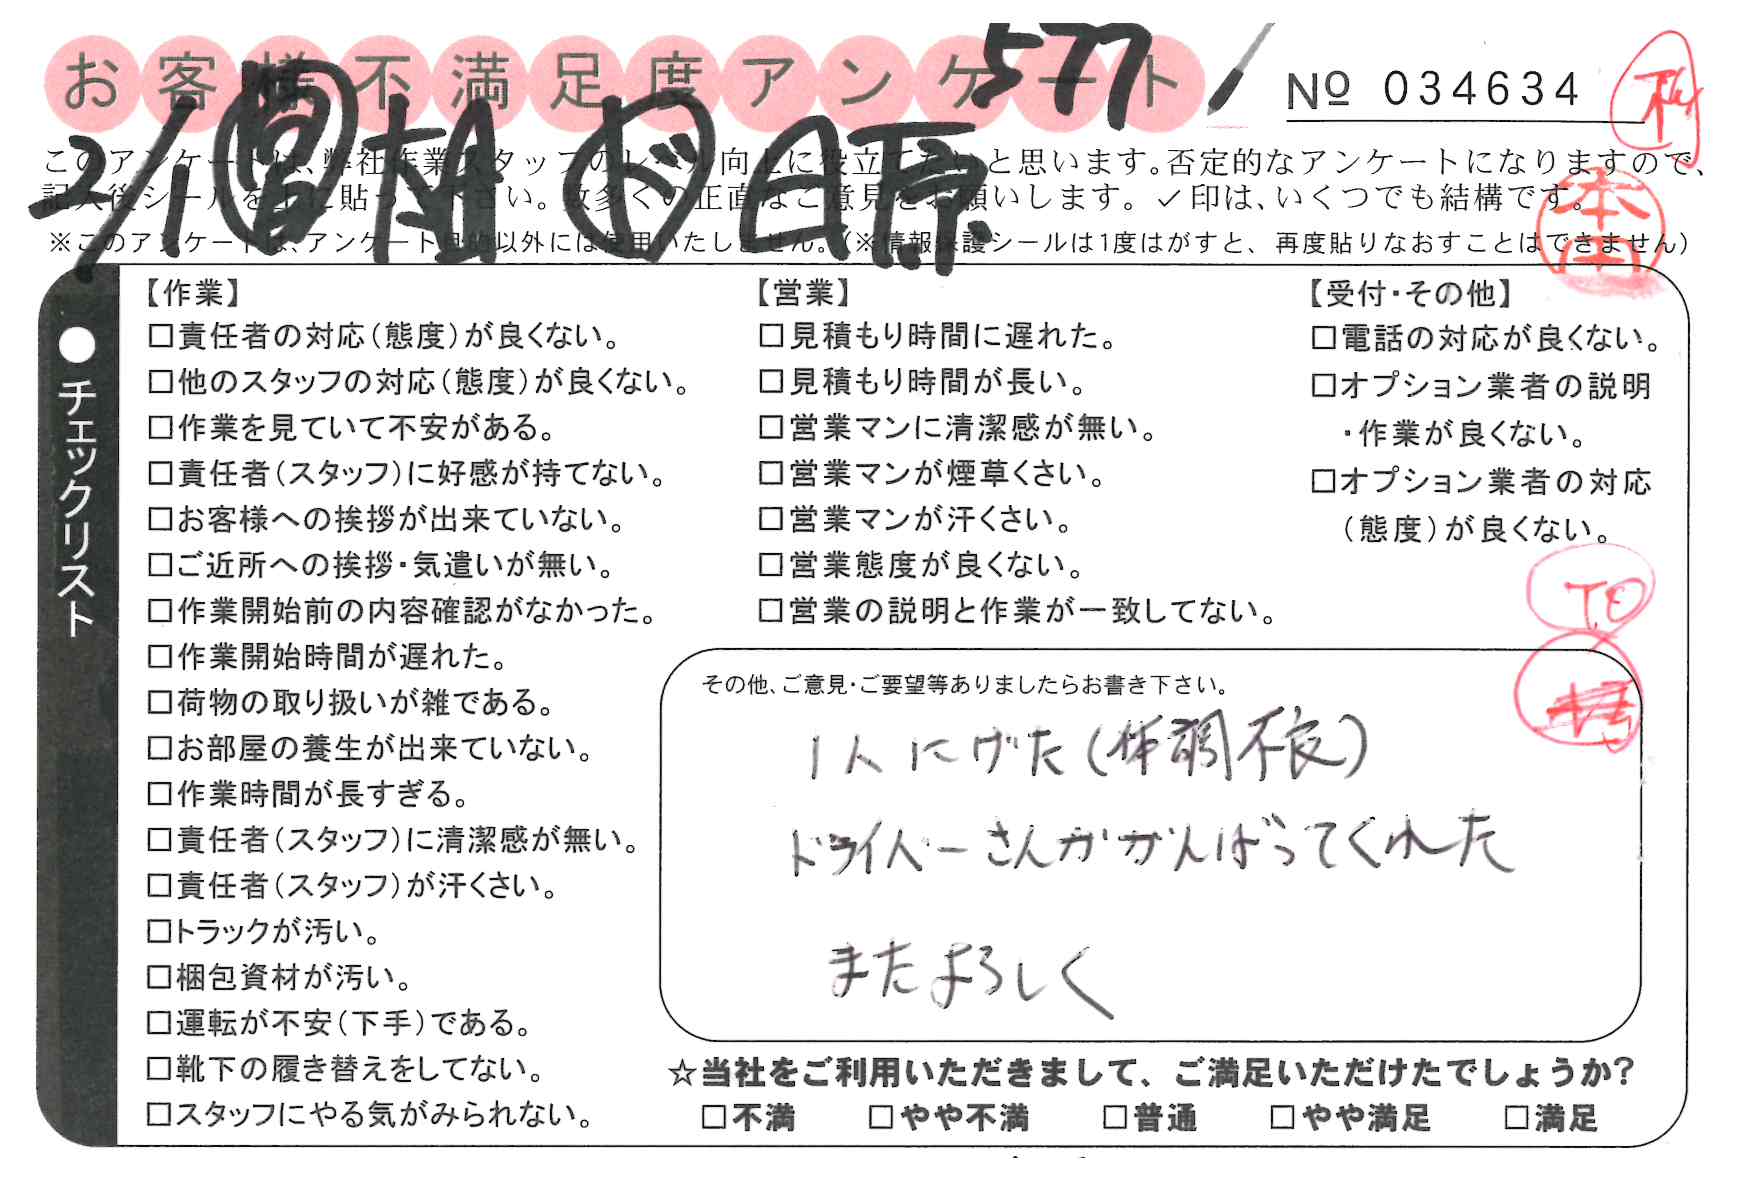 お客様不満足度アンケート
577
№ 034634
2/1 営 ド 日原
このアンケートは、弊社作業スタッフのレベル向上に役立てたいと思います。否定的なアンケートになりますので、
記入後シールを上に貼って下さい。数多くの正直なご意見をお願いします。✓印は、いくつでも結構です。
※このアンケートは、アンケート目的以外には使用いたしません。(※情報保護シールは1度はがすと、再度貼りなおすことはできません)
本田
●チェックリスト
【作業】
□責任者の対応(態度)が良くない。
□他のスタッフの対応(態度)が良くない。
□作業を見ていて不安がある。
□責任者(スタッフ)に好感が持てない。
□お客様への挨拶が出来ていない。
□ご近所への挨拶・気遣いが無い。
□作業開始前の内容確認がなかった。
□作業開始時間が遅れた。
□荷物の取り扱いが雑である。
□お部屋の養生が出来ていない。
□作業時間が長すぎる。
□責任者(スタッフ)に清潔感が無い。
□責任者(スタッフ)が汗くさい。
□トラックが汚い。
□梱包資材が汚い。
□運転が不安(下手)である。
□靴下の履き替えをしてない。
□スタッフにやる気がみられない。
【営業】
□見積もり時間に遅れた。
□見積もり時間が長い。
□営業マンに清潔感が無い。
□営業マンが煙草くさい。
□営業マンが汗くさい。
□営業態度が良くない。
□営業の説明と作業が一致してない。
【受付・その他】
□電話の対応が良くない。
□オプション業者の説明
・作業が良くない。
□オプション業者の対応
(態度)が良くない。
T.E
その他、ご意見・ご要望等ありましたらお書き下さい。
1人にげた(体調不良)
ドライバーさんががんばってくれた
またよろしく
☆当社をご利用いただきまして、ご満足いただけたでしょうか?
□不満 □やや不満 □普通 □やや満足 □満足